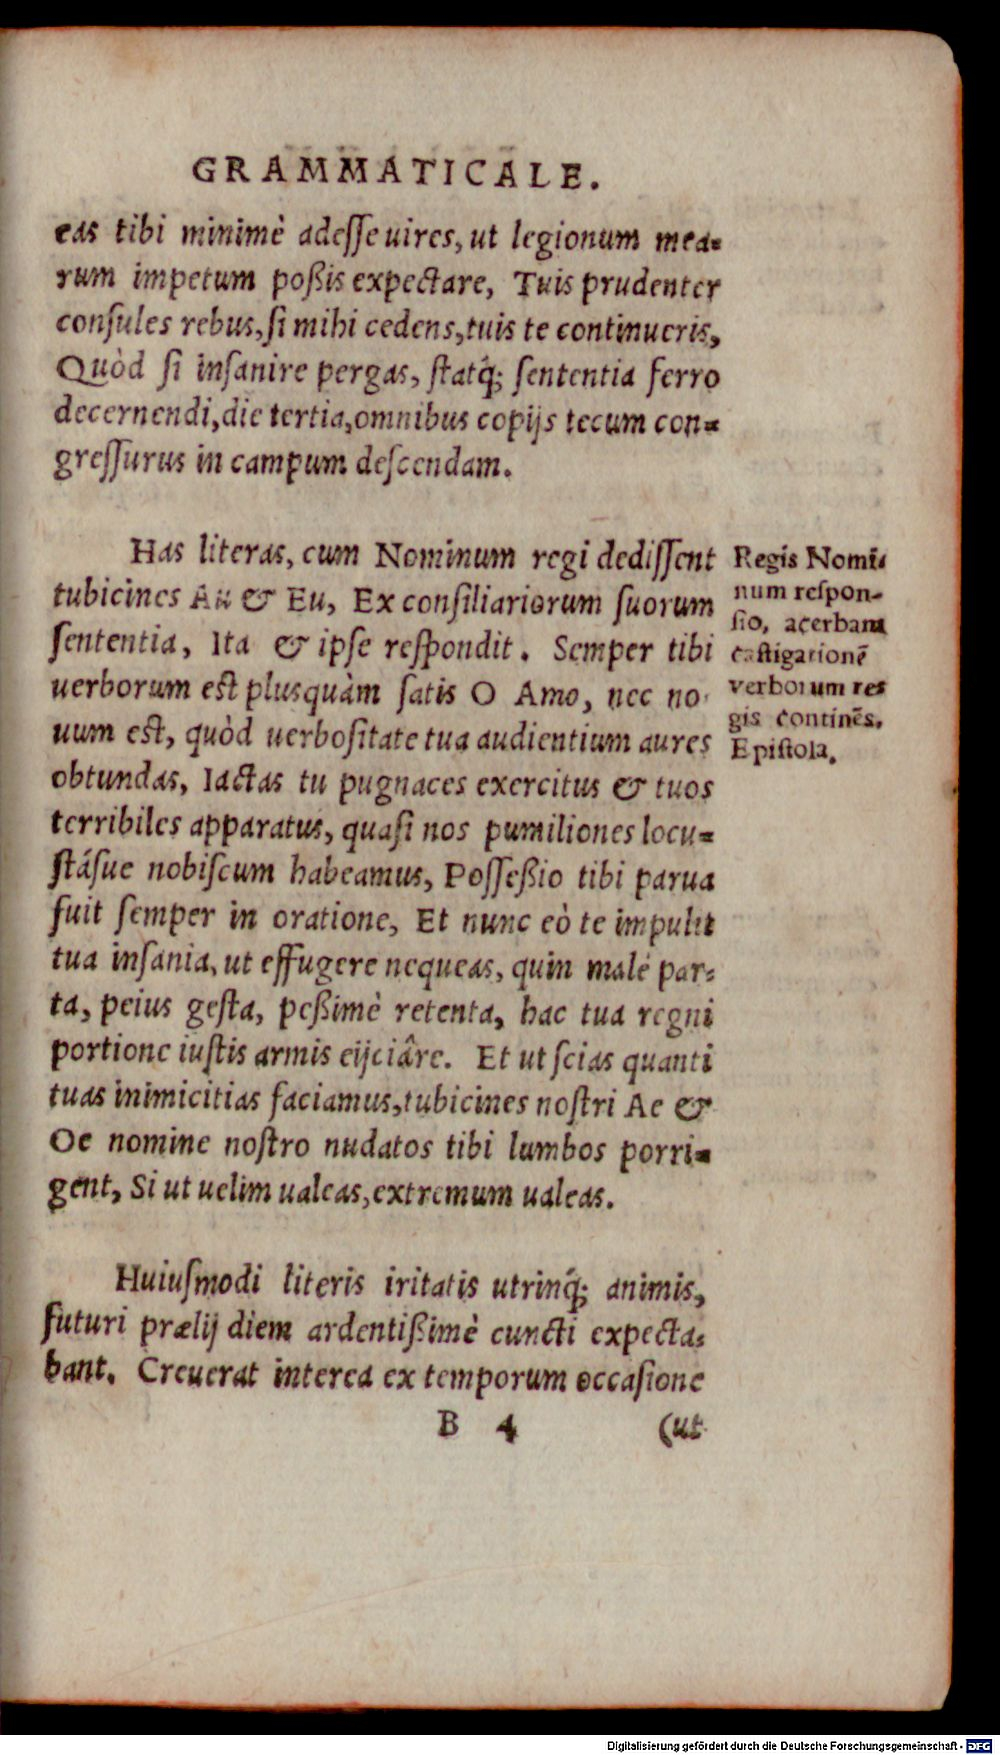 GRAMMATICALE.
eas tibi minimè adesse uires, ut legionum mea=
rum impetum poßis expectare, Tuis prudenter
consules rebus, si mihi cedens, tuis te continueris,
Quòd si insanire pergas, statq́; sententia ferro
decernendi, die tertia, omnibus copijs tecum con=
gressurus in campum descendam.
Has literas, cum Nominum regi dedissent
tubicines Au & Eu, Ex consiliariorum suorum
sententia, Ita & ipse respondit. Semper tibi
uerborum est plusquàm satis O Amo, nec no
uum est, quòd uerbositate tua audientium aures
obtundas, Iactas tu pugnaces exercitus & tuos
terribiles apparatus, quasi nos pumiliones locu=
stásue nobiscum habeamus, Posseßio tibi parua
fuit semper in oratione, Et nunc eò te impulit
tua insania, ut effugere nequeas, quin malè par=
ta, peius gesta, peßimè retenta, hac tua regni
portione iustis armis eijciâre. Et ut scias quanti
tuas inimicitias faciamus, tubicines nostri Ae &
Oe nomine nostro nudatos tibi lumbos porri=
gent, Si ut uelim ualeas, extremum ualeas.
Regis Nomi=
num respon-
sio, acerbam
castigationē
verborum re=
gis continēs.
Epistola.
Huiusmodi literis iritatis utrinq́; animis,
futuri prælij diem ardentißimè cuncti expecta=
bant. Creuerat interea ex temporum occasione
B 4 (ut
Digitalisierung gefördert durch die Deutsche Forschungsgemeinschaft - DFG